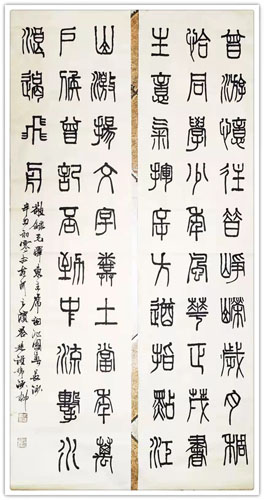 曾游憶往昔崢嶸歲月稠
恰同學少年風華正茂書
生意氣揮斥方遒指點江
山激揚文字糞土當年萬
戶侯曾記否到中流擊水
浪遏飛舟
錄毛澤東主席詞沁園春長沙